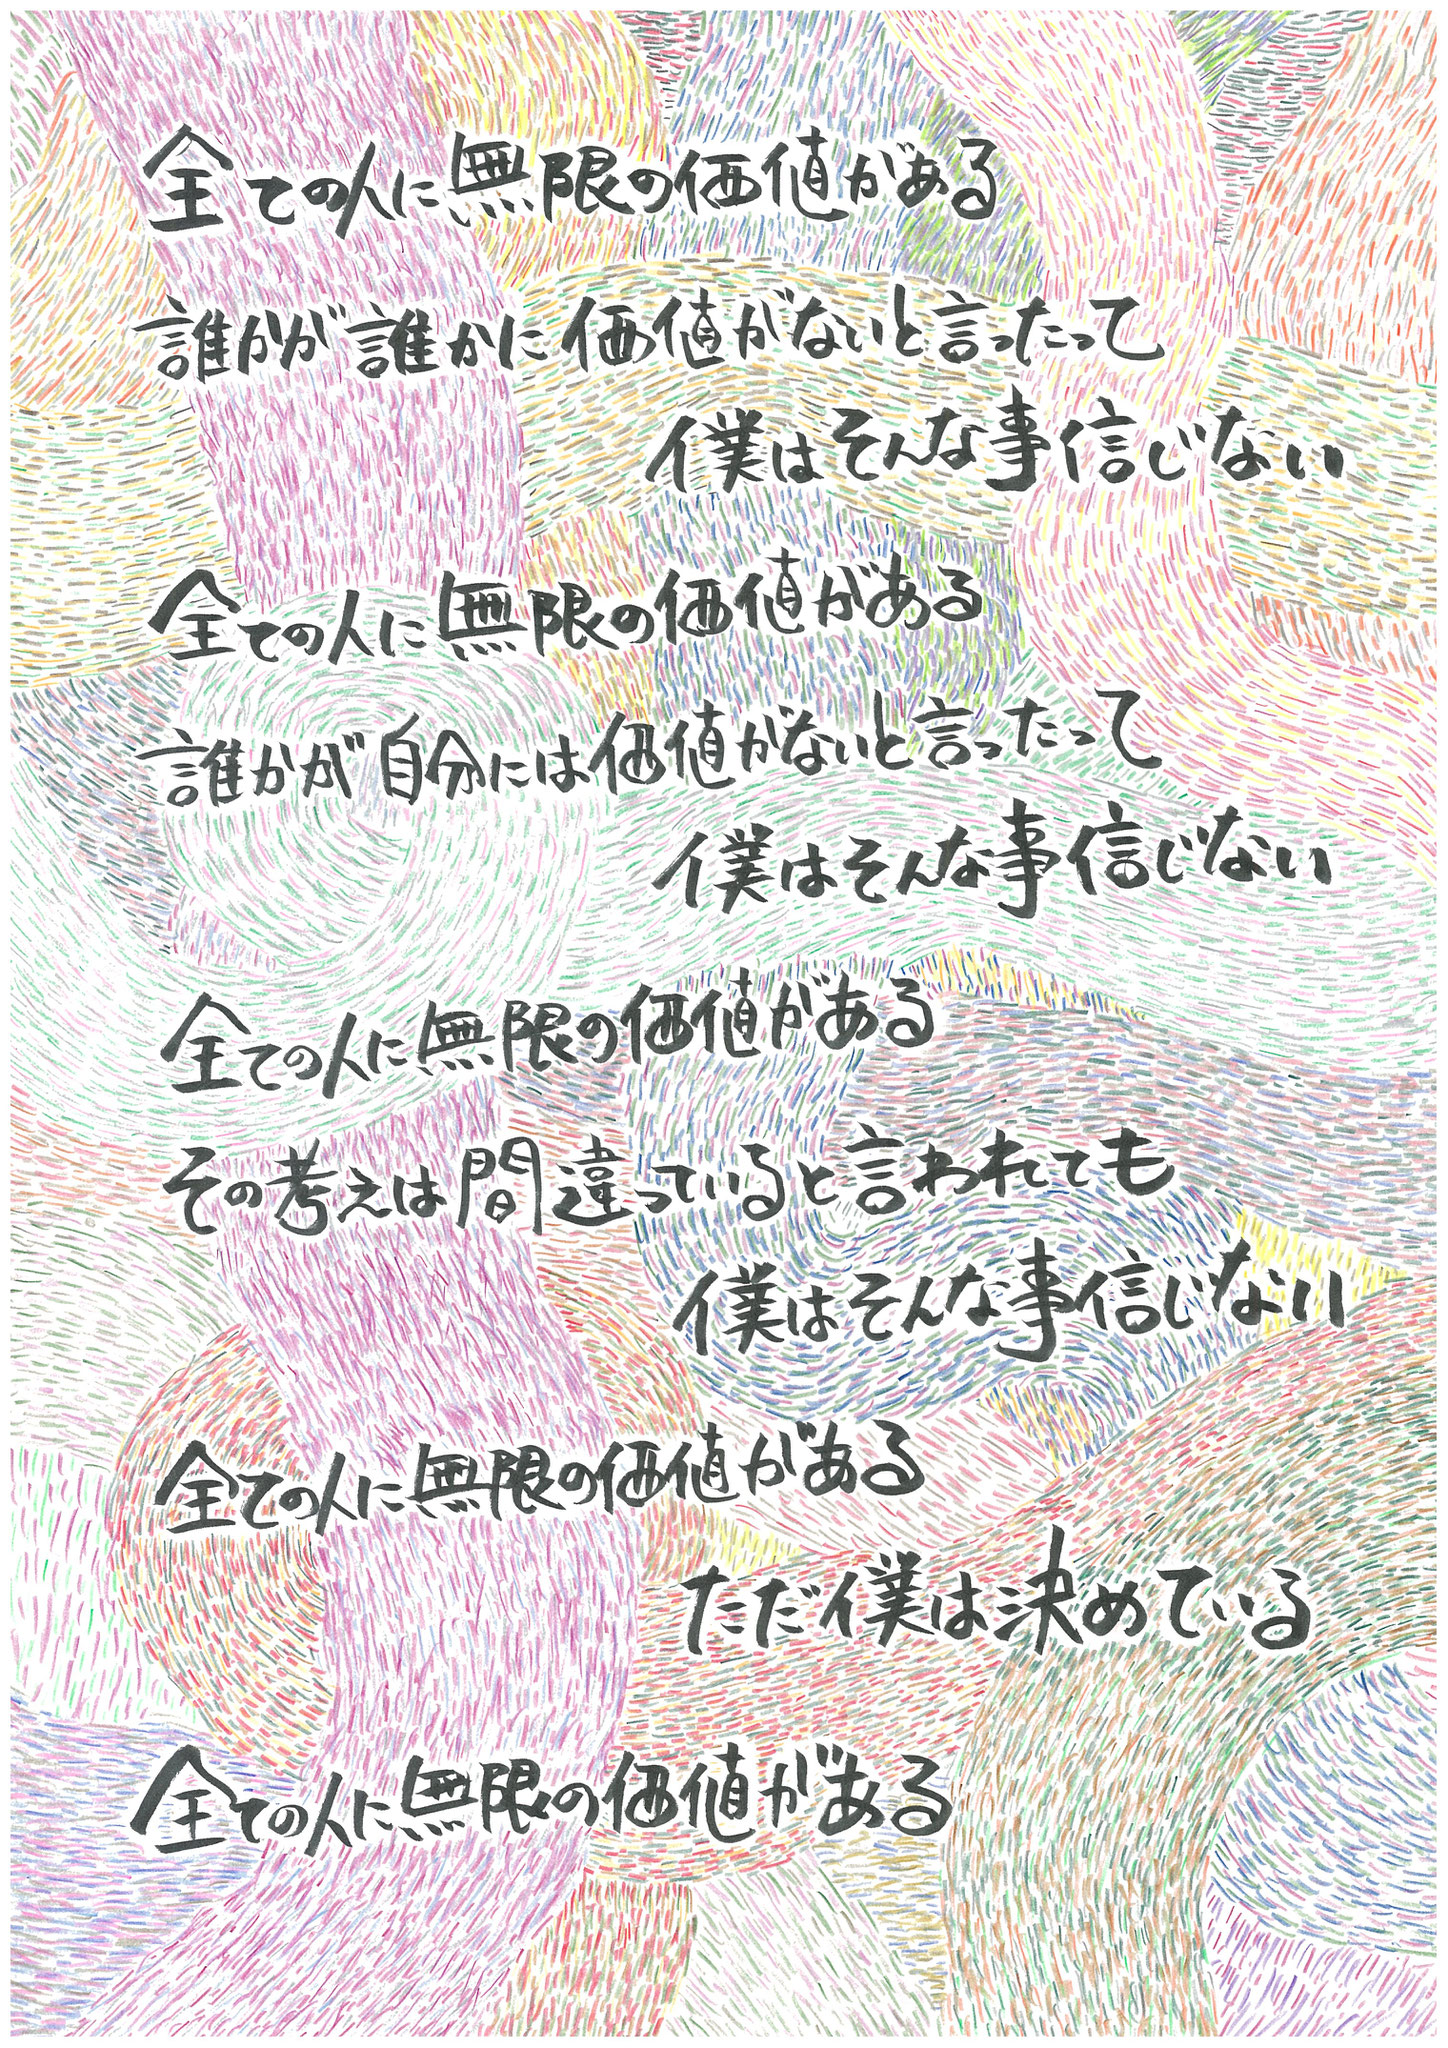 全ての人に無限の価値がある
誰かが誰かに価値がないと言ったって
僕はそんな事信じない
全ての人に無限の価値がある
誰かが自分には価値がないと言ったって
僕はそんな事信じない
全ての人に無限の価値がある
その考えは間違っていると言われても
僕はそんな事信じない
全ての人に無限の価値がある
ただ僕は決めている
全ての人に無限の価値がある